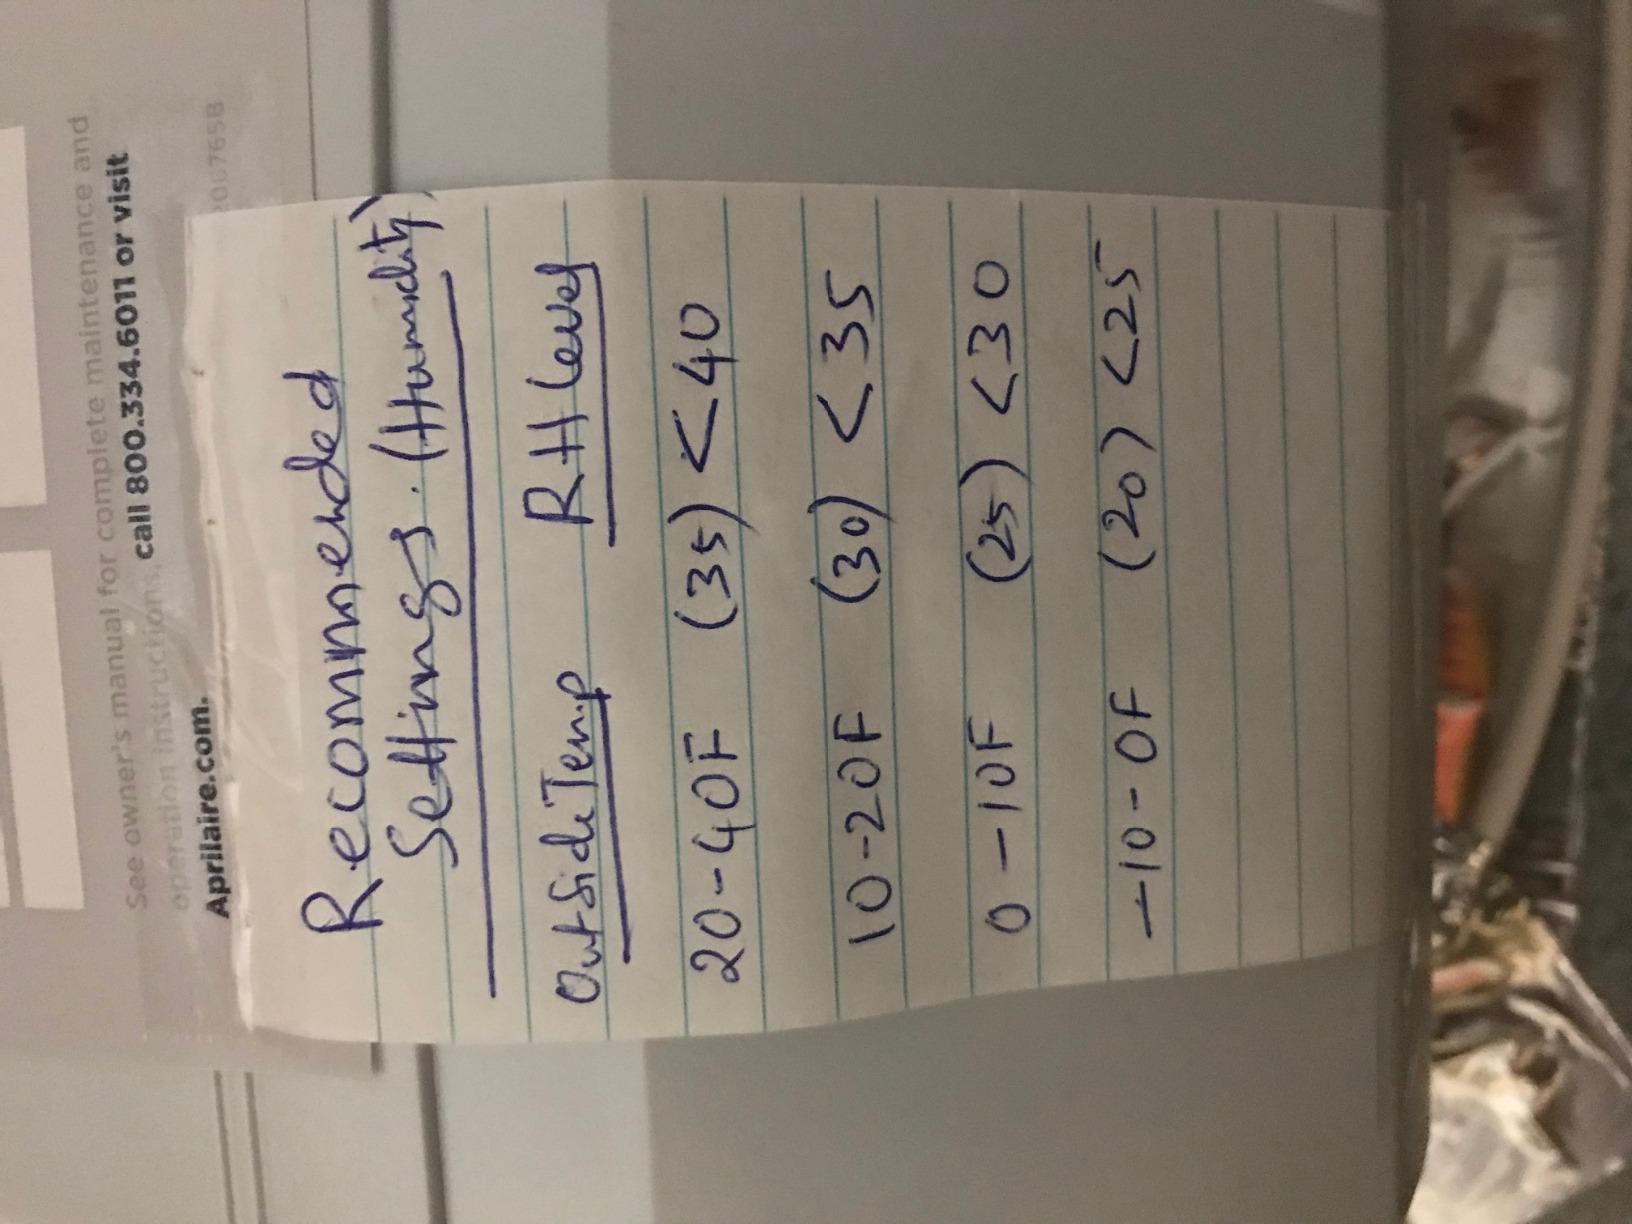 See owner's manual for complete maintenance and
operation instructions, call 800.334.6011 or visit
Aprilaire.com.
Recommended
Settings. (Humidity)
Outside Temp RH level
20-40F (35) <40
10-20F (30) <35
0-10F (25) <30
-10-0F (20) <25